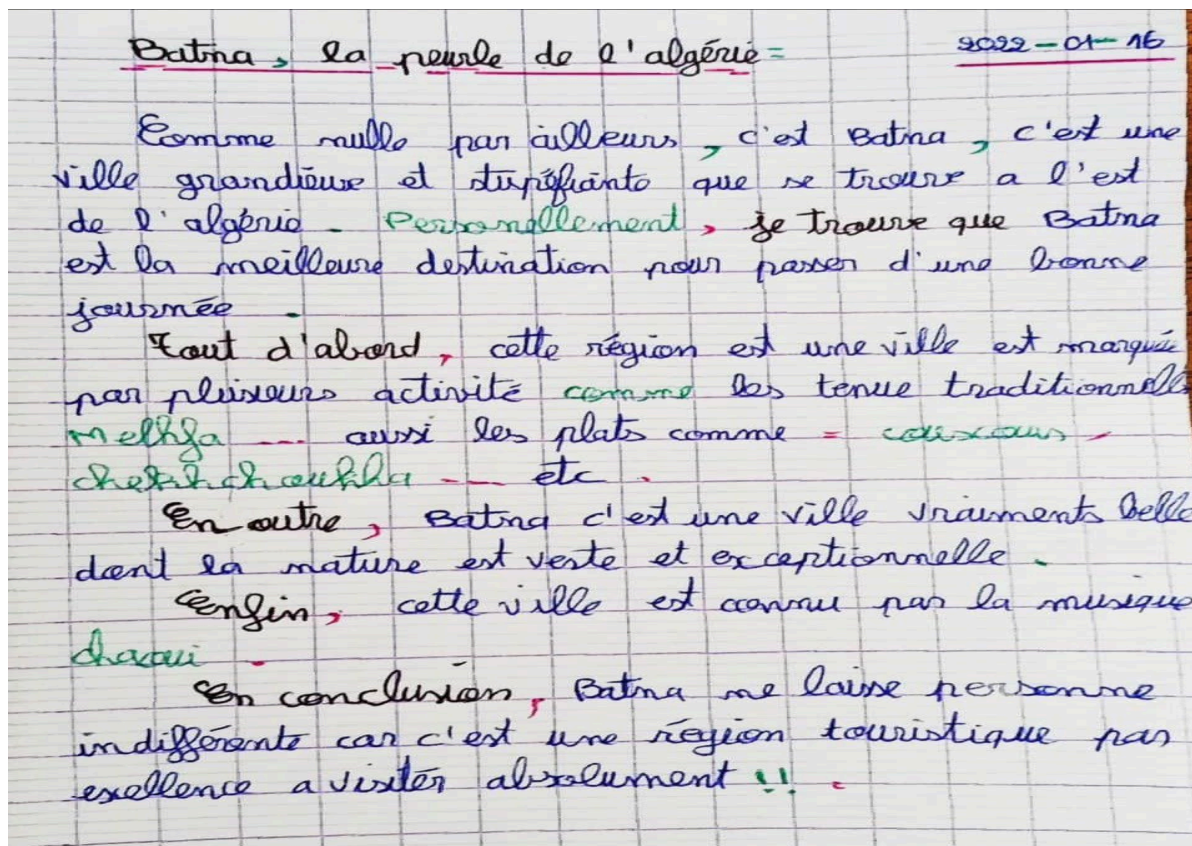 Batna, la peurle de l'algérie = 2022-01-16
Comme nulle par ailleurs, c'est Batna, c'est une
ville grandieuse et stupéfiante que se trouve a l'est
de l'algérie. Personellement, je trouve que Batna
est la meilleure destination pour passer d'une bonne
journée.
Tout d'abord, cette région est une ville est marquée
par pleusieurs activité comme les tenue traditionnelle
Melhfa ... aussi les plats comme = couscous -
chekhchoukha ... etc.
En outre, Batna c'est une ville vraiments belle
dont la nature est verte et exceptionnelle.
Enfin, cette ville est connu par la musique
chaoui.
En conclusion, Batna ne laisse personne
indifférente car c'est une région touristique par
exellence a visiter absolument !!.